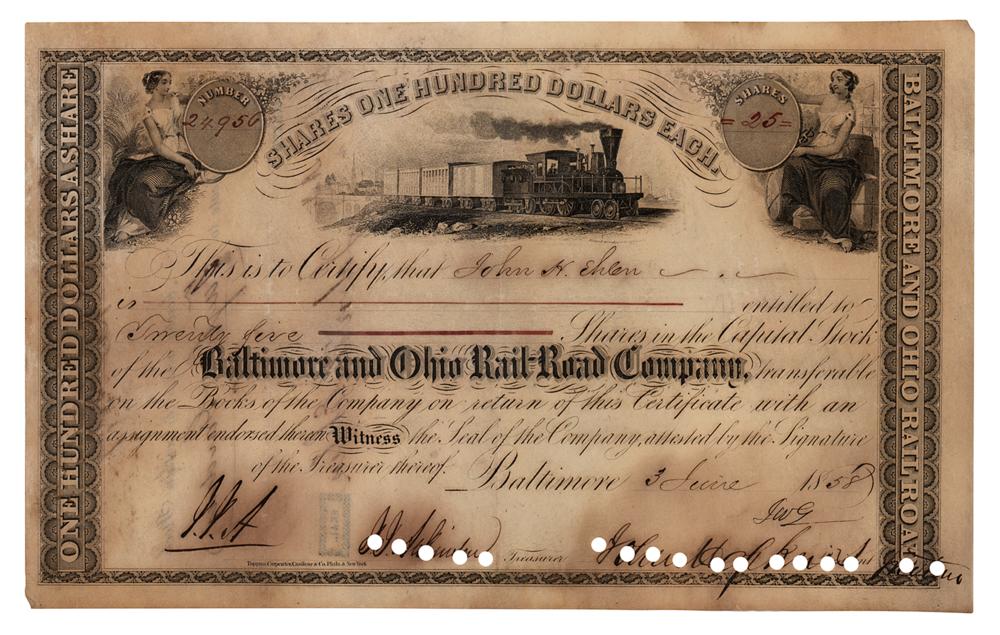 ONE HUNDRED DOLLARS A SHARE
NUMBER
24,950
SHARES ONE HUNDRED DOLLARS EACH.
SHARES
=25=
BALTIMORE AND OHIO RAIL ROAD
This is to Certify, that John H. Ehlen
is entitled to
Twenty five Shares in the Capital Stock
of the Baltimore and Ohio Rail-Road Company, transferable
on the Books of the Company on return of this Certificate with an
assignment endorsed thereon Witness the Seal of the Company, attested by the Signature
of the Treasurer thereof. Baltimore 3 June 1858
JWG
Treasurer
Toppan, Carpenter, Casilear & Co. Phila. & New York